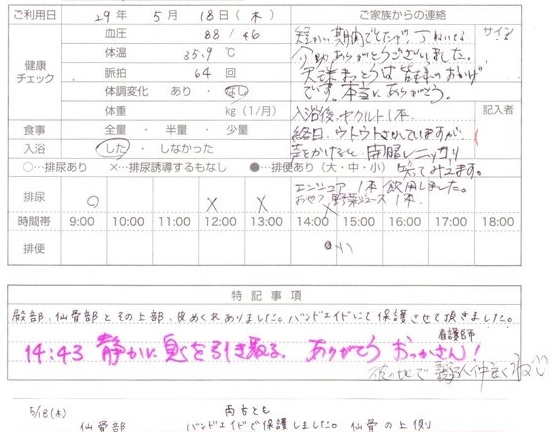 ご利用日 29年 5月 18日(木) ご家族からの連絡 サイン
血圧 88/46
短かい期間でしたが、丁ねいな
体温 35.9 ℃
介助ありがとうございました。
健康チェック 脈拍 64 回
天津まっとうは皆様のおかげ
体調変化 あり・なし
です。本当にありがとう。
体重 kg(1/月)
入浴後、ヤクルト1本。 記入者
食事 全量・半量・少量
終日、ウトウトされていますが、
入浴 した・しなかった
声をかけると、開眼しニッコリ
○…排尿あり ×…排尿誘導するもなし ●…排便あり(大・中・小)
笑ってみえます。
エンシュア 1本 飲用しました。
おやつ 野菜ジュース 1本.
排尿 ○ × × ×
時間帯 9:00 10:00 11:00 12:00 13:00 14:00 15:00 16:00 17:00 18:00
排便 ●小
特記事項
殿部、仙骨部とその上部、皮めくれありました。バンドエイドにて保護させて頂きました。
看護師
14:43 静かに息を引き取る。ありがとう おっかさん!
彼の地で 仲良くね
5/18(木) 両方とも
仙骨部 バンドエイドで保護しました。 仙骨の上側